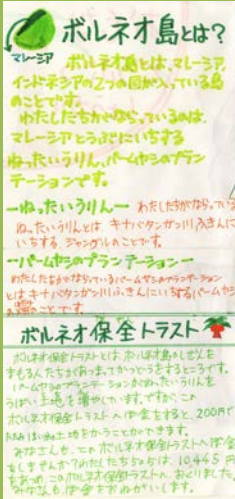 ボルネオ島とは?
マレーシア
ボルネオ島とは、マレーシア、
インドネシアの2つの国が入っている島
のことです。
わたしたちがならっているのは、
マレーシアとうぶにいちする
ねったいうりん、パームヤシのプラン
テーションです。
ーねったいうりんー わたしたちがならっている
ねったいうりんとは キナバタンガン川ふきんに
いちする ジャングルのことです。
ーパームヤシのプランテーションー
わたしたちがならっているパームヤシのプランテーション
とは キナバタンガン川ふきんにいちするパームヤシ
のことです。
ボルネオ保全トラスト
ボルネオ保全トラストとは、ボルネオ島のしぜんを
まもる人たちがあつまってかつどうをするところです。
パームヤシのプランテーションがねったいうりんを
うばい土地を増やしています。ですが、この
ボルネオ保全トラストへぼ金をすると、200円で
土地をかうことができます。
みなさんも、この ボルネオ保全トラストへぼ金
をしませんか?わたしたち
10,445円
をあつめ このボルネオ保全トラストへ おくりました。
みなさんも ぼ金をおねがいします。